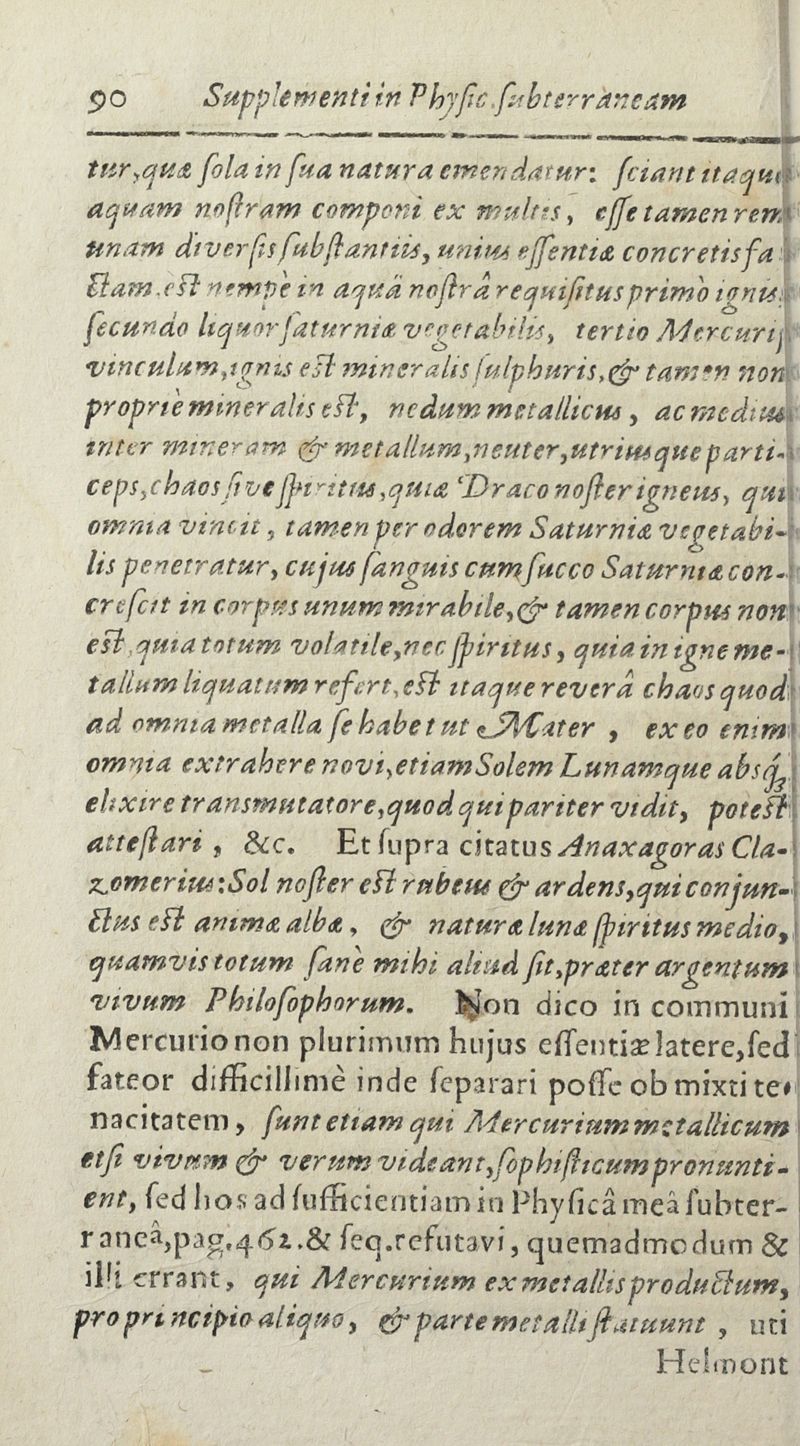 90 Supplementi in Physic. subterraneam
tur, quæ sola in sua natura emendatur: sciant itaque
aquam nostram componi ex multis, esse tamen rem
unam diversis substantiis, unius essentiæ concretis fa
ctam. est nempe in aquâ nostrâ requisitus primò ignis,
secundo liquor saturniæ vegetabilis, tertio Mercurij
vinculum, ignis est mineralis sulphuris, & tamen non
propriè mineralis est, nedum metallicus, ac medius
inter mineram & metallum, neuter, utriusque parti-
ceps, chaos sive spiritus, quia Draco noster igneus, qui
omnia vincit, tamen per odorem Saturniæ vegetabi-
lis penetratur, cujus sanguis cum succo Saturniæ con-
crescit in corpus unum mirabile, & tamen corpus non
est, quia totum volatile, nec spiritus, quia in igne me-
tallum liquatum refert, est itaque reverâ chaos quod
ad omnia metalla se habet ut Mater, ex eo enim
omnia extrahere novi, etiam Solem Lunamque absq;
elixire transmutatore, quod qui pariter vidit, potest
attestari, &c. Et supra citatus Anaxagoras Cla-
zomerius: Sol noster est rubeus & ardens, qui conjun-
ctus est animæ albæ, & naturæ lunæ spiritus medio,
quamvis totum sane mihi aliud sit, præter argentum
vivum Philosophorum. Non dico in communi
Mercurio non plurimum hujus essentiæ latere, sed
fateor difficillimè inde separari posse ob mixti te-
nacitatem, sunt etiam qui Mercurium metallicum
etsi vivum & verum videant, sophisticum pronunti-
ent, sed hos ad sufficientiam in Physicâ meâ subter-
raneâ, pag. 462. & seq. refutavi, quemadmodum &
illi errant, qui Mercurium ex metallis productum,
pro principio aliquo, & parte metalli statuunt, uti
Helmont